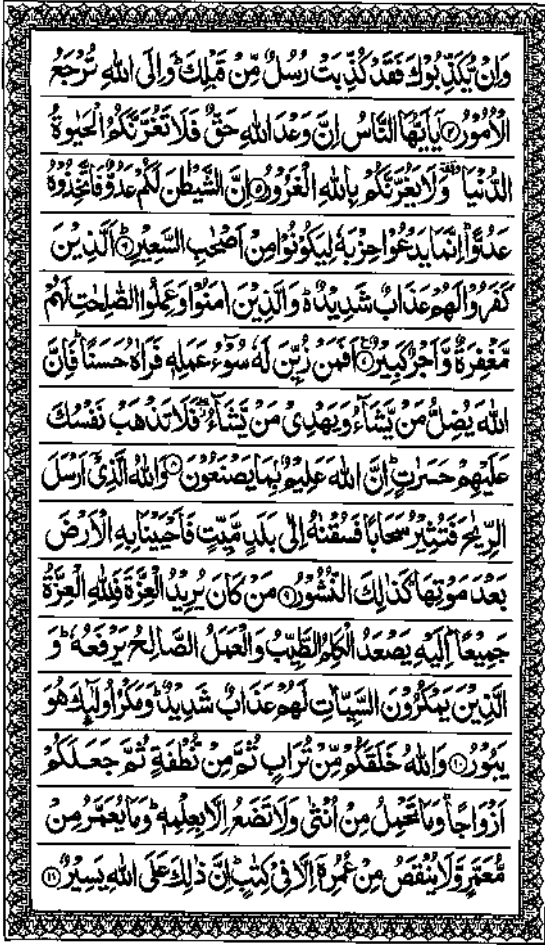 وَاِنْ يُّكَذِّبُوْكَ فَقَدْ كُذِّبَتْ رُسُلٌ مِّنْ قَبْلِكَ ؕ وَاِلَى اللّٰهِ تُرْجَعُ
الْاُمُوْرُ ۴ يٰۤاَيُّهَا النَّاسُ اِنَّ وَعْدَ اللّٰهِ حَقٌّ فَلَا تَغُرَّنَّكُمُ الْحَيٰوةُ
الدُّنْيَا ۥ وَلَا يَغُرَّنَّكُمْ بِاللّٰهِ الْغَرُوْرُ ۵ اِنَّ الشَّيْطٰنَ لَكُمْ عَدُوٌّ فَاتَّخِذُوْهُ
عَدُوًّا ؕ اِنَّمَا يَدْعُوْا حِزْبَهٗ لِيَكُوْنُوْا مِنْ اَصْحٰبِ السَّعِيْرِ ۶ اَلَّذِيْنَ
كَفَرُوْا لَهُمْ عَذَابٌ شَدِيْدٌ ؕ وَالَّذِيْنَ اٰمَنُوْا وَعَمِلُوا الصّٰلِحٰتِ لَهُمْ
مَّغْفِرَةٌ وَّاَجْرٌ كَبِيْرٌ ۷ اَفَمَنْ زُيِّنَ لَهٗ سُوْٓءُ عَمَلِهٖ فَرَاٰهُ حَسَنًا ؕ فَاِنَّ
اللّٰهَ يُضِلُّ مَنْ يَّشَآءُ وَيَهْدِيْ مَنْ يَّشَآءُ ۖ فَلَا تَذْهَبْ نَفْسُكَ
عَلَيْهِمْ حَسَرٰتٍ ؕ اِنَّ اللّٰهَ عَلِيْمٌۢ بِمَا يَصْنَعُوْنَ ۸ وَاللّٰهُ الَّذِيْۤ اَرْسَلَ
الرِّيٰحَ فَتُثِيْرُ سَحَابًا فَسُقْنٰهُ اِلٰى بَلَدٍ مَّيِّتٍ فَاَحْيَيْنَا بِهِ الْاَرْضَ
بَعْدَ مَوْتِهَا ؕ كَذٰلِكَ النُّشُوْرُ ۹ مَنْ كَانَ يُرِيْدُ الْعِزَّةَ فَلِلّٰهِ الْعِزَّةُ
جَمِيْعًا ؕ اِلَيْهِ يَصْعَدُ الْكَلِمُ الطَّيِّبُ وَالْعَمَلُ الصَّالِحُ يَرْفَعُهٗ ؕ وَ
الَّذِيْنَ يَمْكُرُوْنَ السَّيِّاٰتِ لَهُمْ عَذَابٌ شَدِيْدٌ ؕ وَمَكْرُ اُولٰٓئِكَ هُوَ
يَبُوْرُ ۱۰ وَاللّٰهُ خَلَقَكُمْ مِّنْ تُرَابٍ ثُمَّ مِنْ نُّطْفَةٍ ثُمَّ جَعَلَكُمْ
اَزْوَاجًا ؕ وَمَا تَحْمِلُ مِنْ اُنْثٰى وَلَا تَضَعُ اِلَّا بِعِلْمِهٖ ؕ وَمَا يُعَمَّرُ مِنْ
مُّعَمَّرٍ وَّلَا يُنْقَصُ مِنْ عُمُرِهٖۤ اِلَّا فِيْ كِتٰبٍ ؕ اِنَّ ذٰلِكَ عَلَى اللّٰهِ يَسِيْرٌ ۱۱